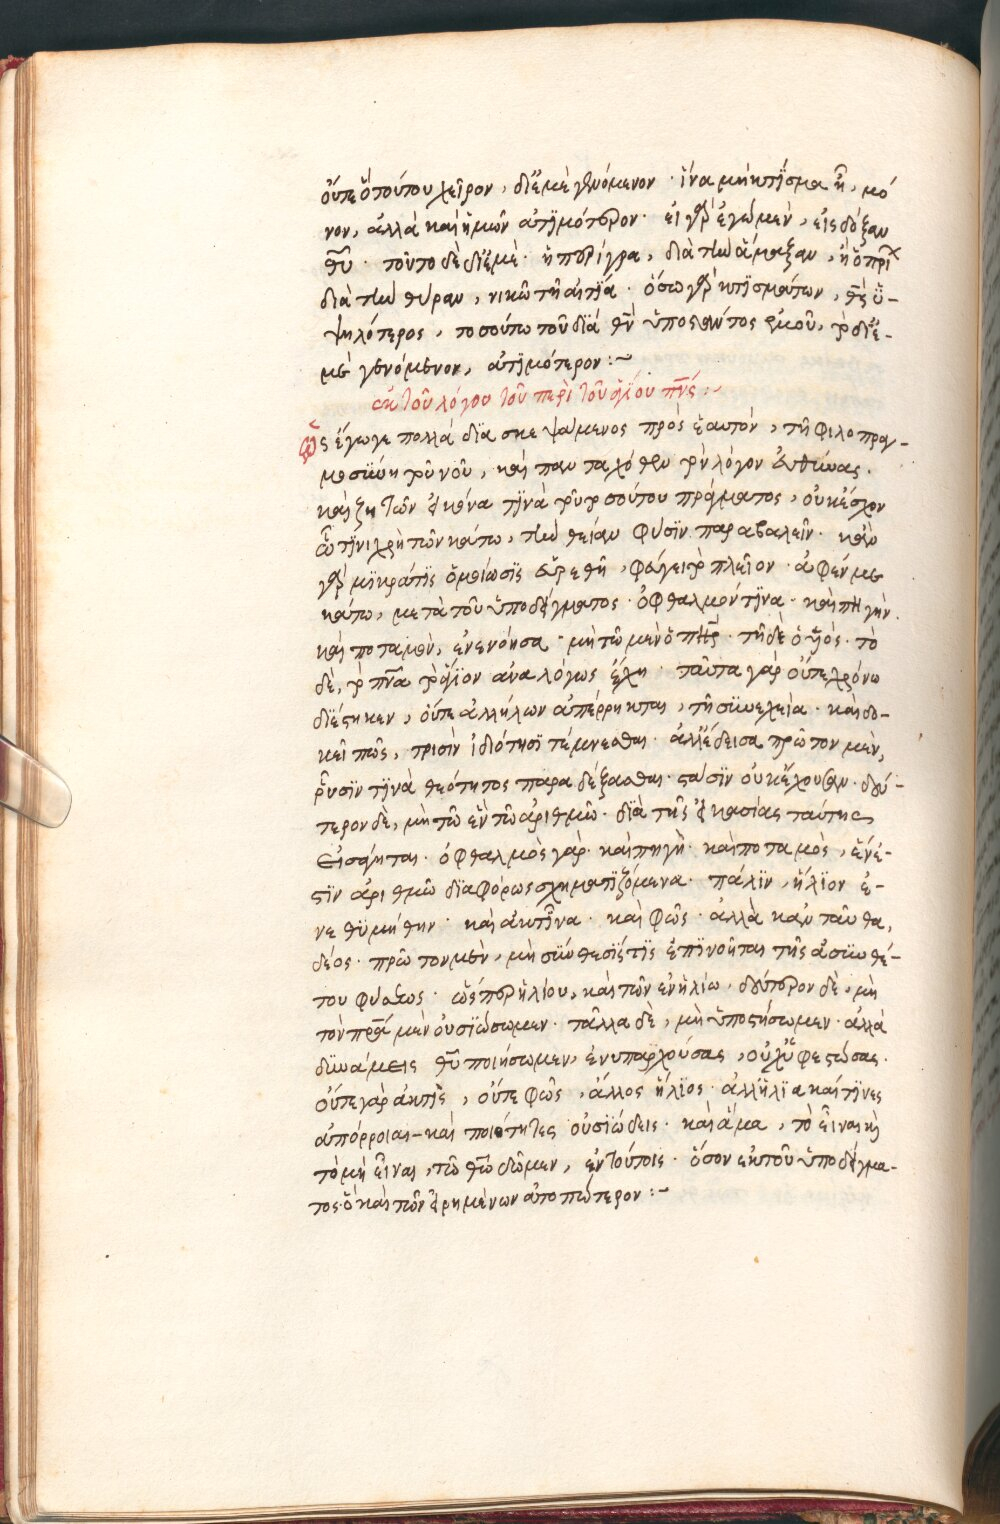 οὔτε ὃ τούτου χεῖρον, δι' ἐμὲ γενόμενον · ἵνα μὴ κτίσμα ᾖ, μό
νον, ἀλλὰ καὶ ἡμῶν ἀτιμότερον · εἰ γὰρ ἐγὼ μὲν, εἰς δόξαν
θυ · τοῦτο δὲ δι' ἐμὲ · ἡ πυράγρα, διὰ τὴν ἅμαξαν, ἢ ὁ πρί
διὰ τὴν θύραν, νικῶ τῇ αἰτία · ὅσω γὰρ κτισμάτων, θς ὑ-
ψηλότερος, τοσούτω τοῦ διὰ θν ὑποστάντος ἐμοῦ, τὸ δι' ἐ-
μὲ γενόμενον, ἀτιμότερον :~
ἐκ τοῦ λόγου τοῦ περὶ τοῦ ἁγίου πνς :~
Ὡς ἔγωγε πολλὰ διασκεψάμενος πρὸς ἑαυτὸν, τῆ φιλοπραγ-
μοσύνη τοῦ νοῦ, καὶ πανταχόθεν τὸν λόγον εὐθύνας ·
καὶ ζητῶν εἰκόνα τινὰ τοῦ τοσούτου πράγματος, οὐκ ἔσχον
ᾧτινι χρὴ τῶν κάτω, τὴν θείαν φύσιν παραβαλεῖν · κἂν
γὰρ μικρά τις ὁμοίωσις εὑρεθῆ, φεύγει τὸ πλεῖον · ἀφέν με
κάτω, μετὰ τοῦ ὑποδείγματος · ὀφθαλμόν τινα · καὶ πηγὴν
καὶ ποταμὸν, ἐνενόησα · μὴ τῶ μὲν ὁ πηρ · τῆ δὲ ὁ υἱός · τῶ
δὲ, τὸ πνα τὸ ἅγιον ἀναλόγως ἔχη · ταῦτα γὰρ οὔτε χρόνω
διέστηκεν, οὔτε ἀλλήλων ἀπέρρηκται, τῆ συνεχεία · καὶ δο-
κεῖ πως, τρισὶν ἰδιότησι τέμνεσθαι · ἀλλ' ἔδεισα πρῶτον μὲν,
ῥύσιν τινὰ θεότητος παραδέξασθαι · στάσιν οὐκ ἔχουσαν · δεύ-
τερον δὲ, μὴ τῶ ἓν τῶ ἀριθμῶ · διὰ τῆς εἰκασίας ταύτης
εἰσάγηται · ὀφθαλμὸς γὰρ · καὶ πηγὴ · καὶ ποταμὸς, ἕν ἐ-
στιν ἀριθμῶ διαφόρως σχηματιζόμενα · πάλιν, ἥλιον ἐ-
νεθυμήθην · καὶ ἀκτῖνα · καὶ φῶς · ἀλλὰ κἀνταῦθα,
δέος · πρῶτον μὲν, μὴ σύνθεσίς τις ἐπινοῆται τῆς ἀσυνθέ-
του φύσεως · ὥσπερ ἡλίου, καὶ τῶν ἐν ἡλίω · δεύτερον δὲ, μὴ
τὸν πρα μὲν οὐσιώσωμεν · τἆλλα δὲ, μὴ ὑποστήσωμεν · ἀλλὰ
δυνάμεις θυ ποιήσωμεν, ἐνυπαρχούσας, οὐχ ὑφεστώσας ·
οὔτε γὰρ ἀκτὶς, οὔτε φῶς, ἄλλος ἥλιος · ἀλλ' ἡλιακαί τινες
ἀπόρροιαι - καὶ ποιότητες οὐσιώδεις · καὶ ἅμα, τὸ εἶναι κὶ
τὸ μὴ εἶναι, τῶ θω δῶμεν, ἐν τούτοις · ὅσον ἐκ τοῦ ὑποδείγμα-
τος · ὃ καὶ τῶν εἰρημένων ἀτοπώτερον :~